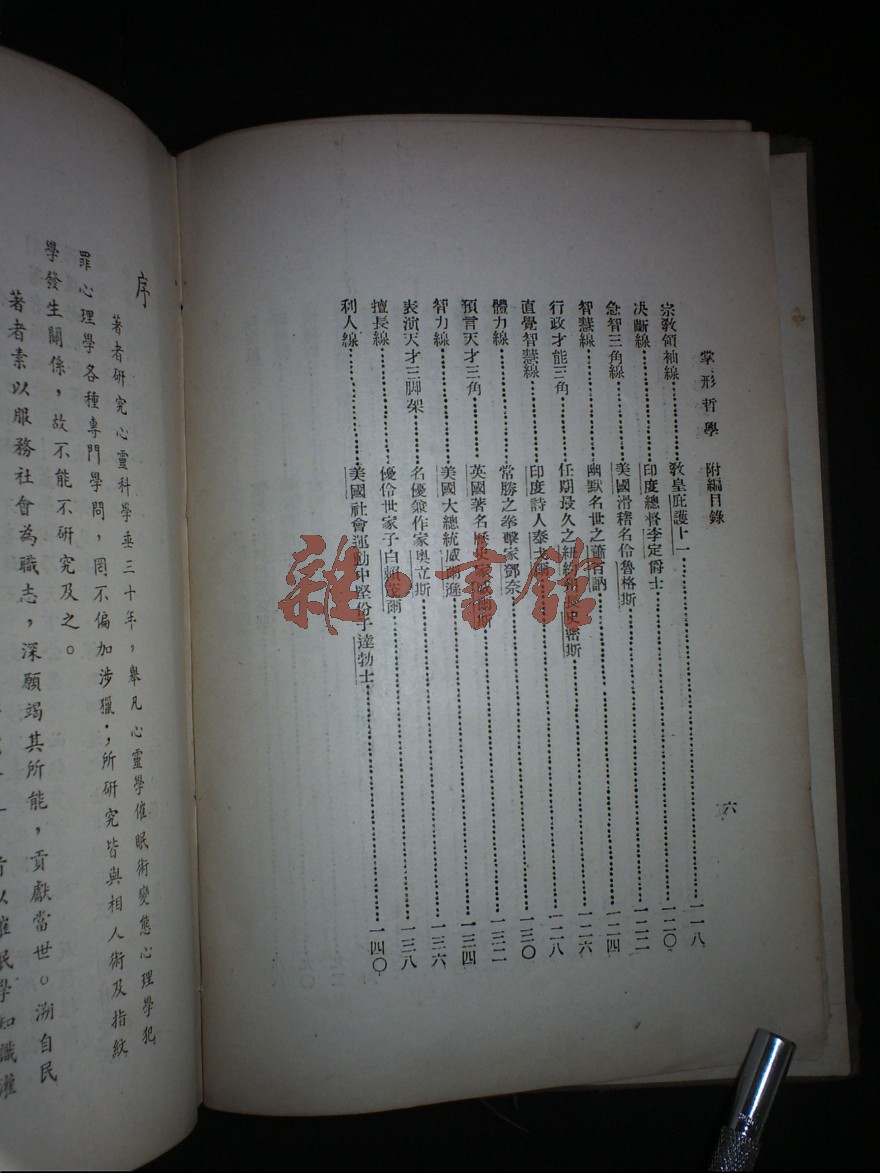 掌形哲學 附編目錄 六
宗教領袖線……教皇庇護十一……一一八
決斷線……印度總督李定爵士……一二〇
急智三角線……美國滑稽名伶魯格斯……一二二
智慧線……幽默名世之蕭百訥……一二四
行政才能三角……任期最久之紐約州長史密斯……一二六
直覺智慧線……印度詩人泰戈爾……一二八
體力線……常勝之拳擊家鄧奈……一三〇
預言天才三角……英國著名歷史家威爾斯……一三二
智力線……美國大總統威爾遜……一三四
表演天才三脚架……名優兼作家奧立斯……一三六
擅長線……優伶世家子白賴爾……一三八
利人線……美國社會運動中堅份子達勃士……一四〇
雜·書館
序
著者研究心靈科學垂三十年，舉凡心靈學催眠術變態心理學犯
罪心理學各種專門學問，罔不偏加涉獵；所研究皆與相人術及指紋
學發生關係，故不能不研究及之。
著者素以服務社會為職志，深願竭其所能，貢獻當世。溯自民
以催民學知識灌